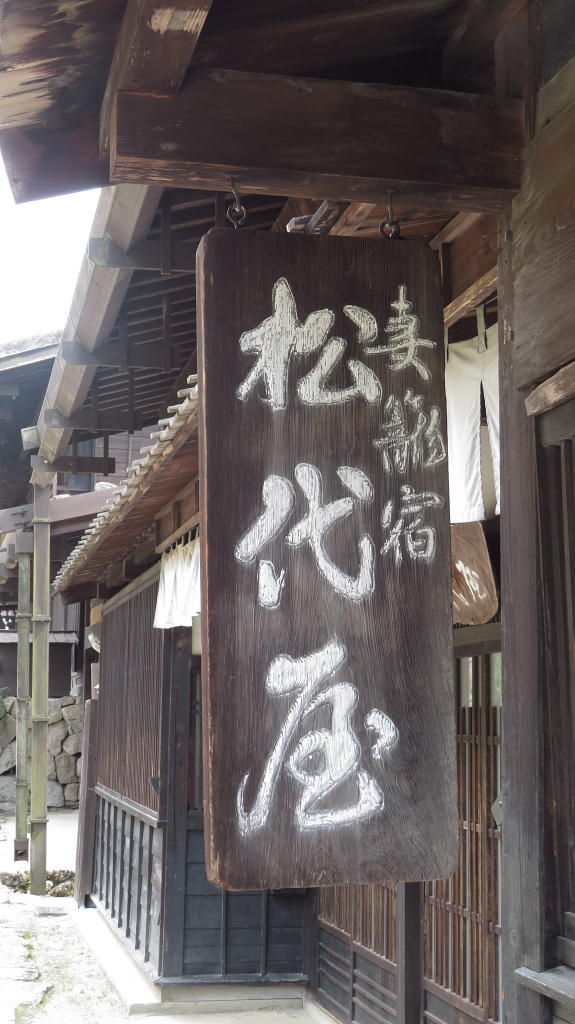 妻籠宿
松代屋